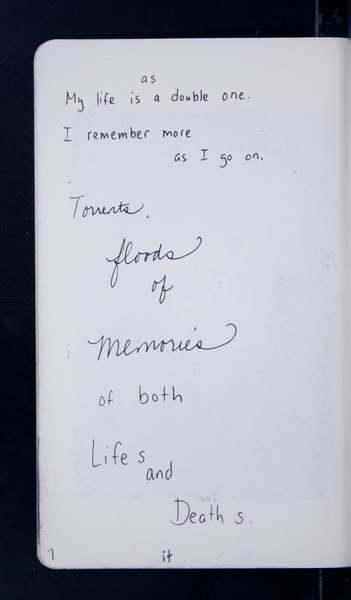 as
My life is a double one.
I remember more
as I go on.
Torrents,
floods
of
Memories
of both
Life s
and
Death s.
7
it